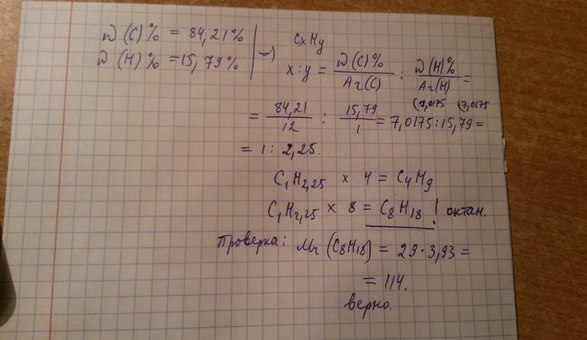 W(C)% = 84,21%
W(H)% = 15,79%
CxHy
x:y = W(C)% / Ar(C) : W(H)% / Ar(H) =
= 84,21 / 12 : 15,79 / 1 = 7,0175 : 15,79 = (7,0175 (7,0175
= 1 : 2,25.
C1H2,25 x 4 = C4H9
C1H2,25 x 8 = C8H18! октан.
Проверка: Mr (C8H18) = 29·3,93 =
= 114.
верно.